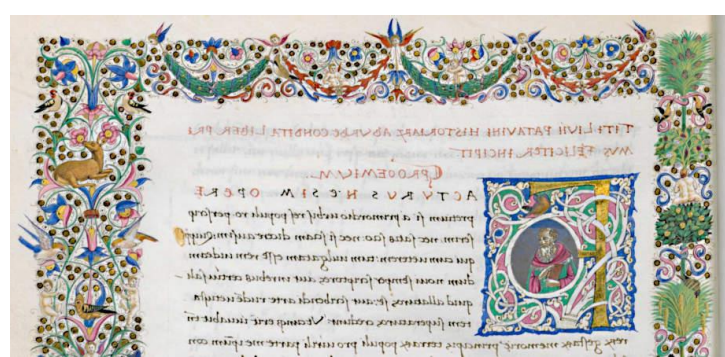 TITI LIVII PATAVINI HISTORIARꝜ AB VRBE CONDITA LIBER PRI
MVS FELICITER INCIPIT
PROOEMIVM
FACTVRVS NE SIM OPERE
pretium si a primordio urbis res populi ro perscrip
serim. nec satis scio nec si sciam dicere ausim. Quippe
qui cum ueterem tum uulgatam esse rem uideam
dum noui semper scriptores aut in rebus certius ali-
quid allaturos se aut scribendi arte rudē uetusta
tem superaturos credunt. Vtcunqꝫ erit iuuabit tn̄
rerꝝ gestarꝝ memorie principis terrarꝝ populi pro uirili parte me ipsum con